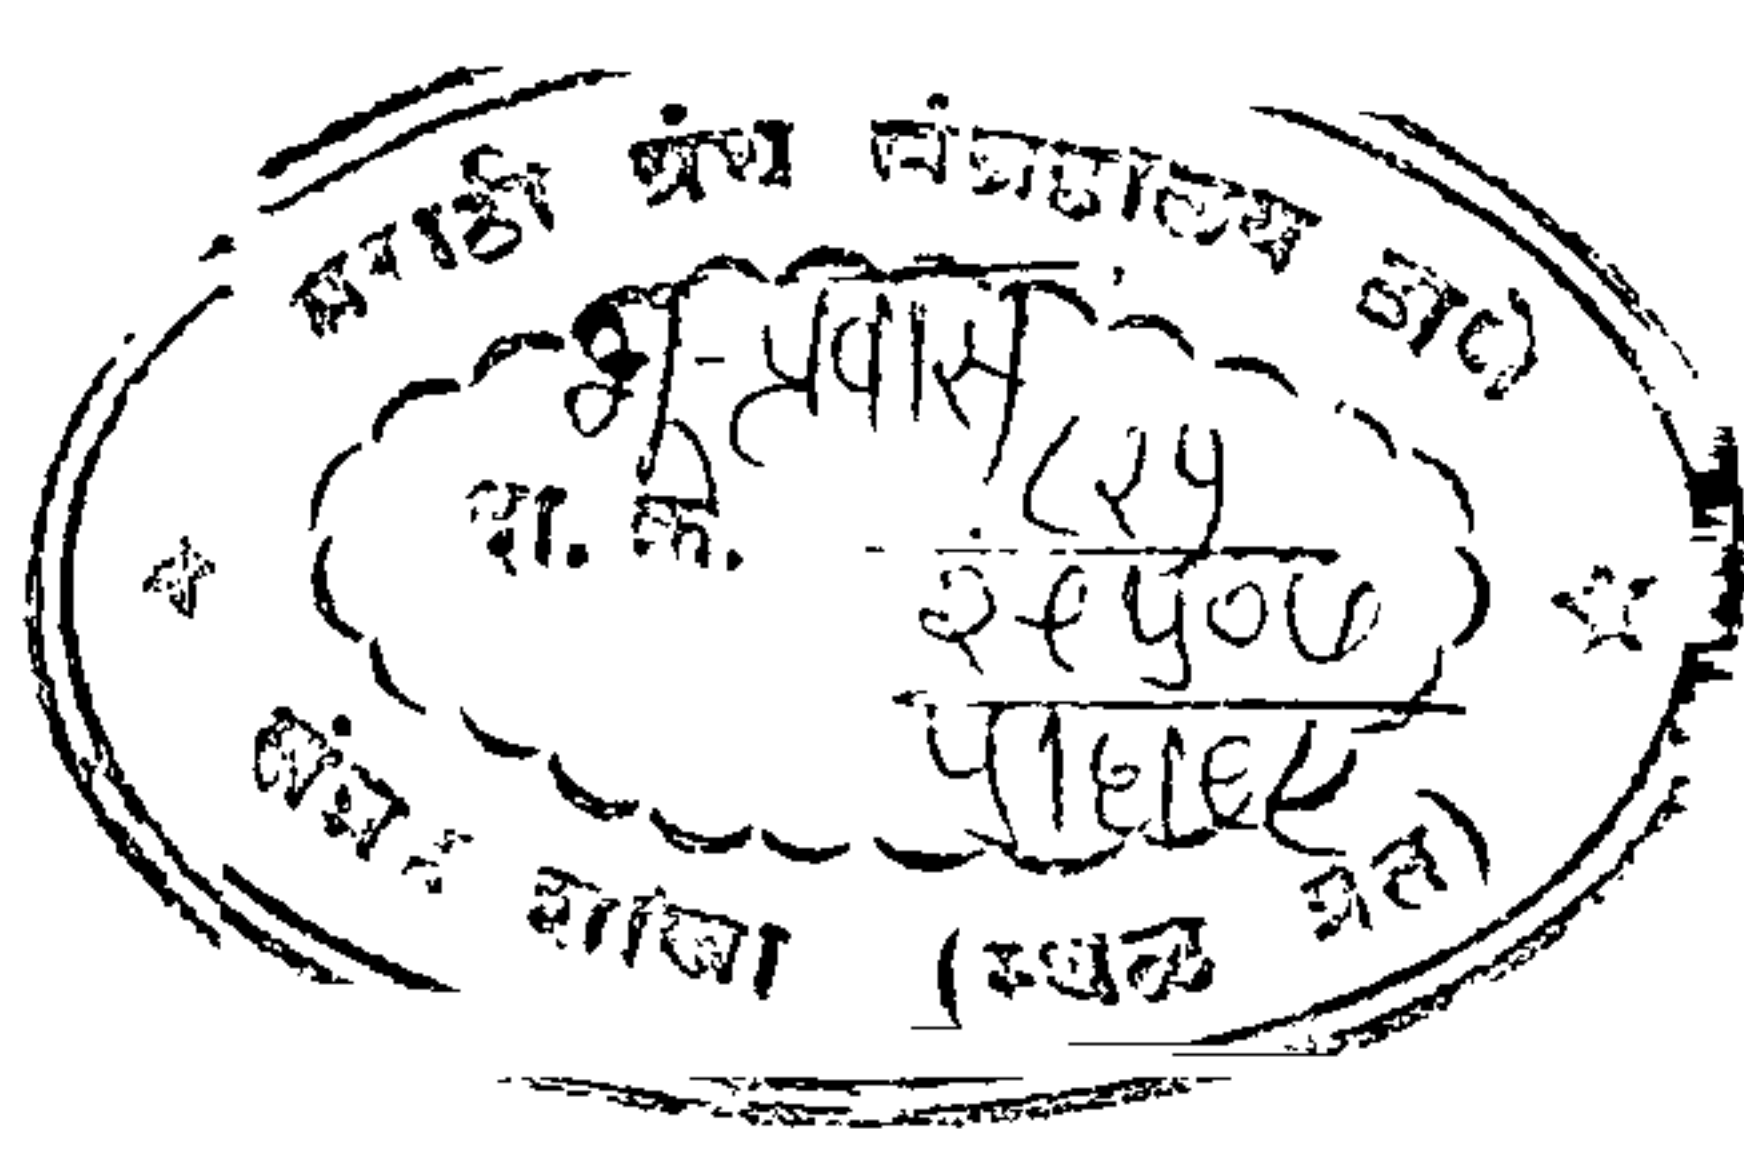 मराठी ग्रंथ संग्रहालय ठाणे
भू-प्रवास
दा. क्र.
८२५
२९५०७
संदर्भ शाखा (स्थळ प्रत)